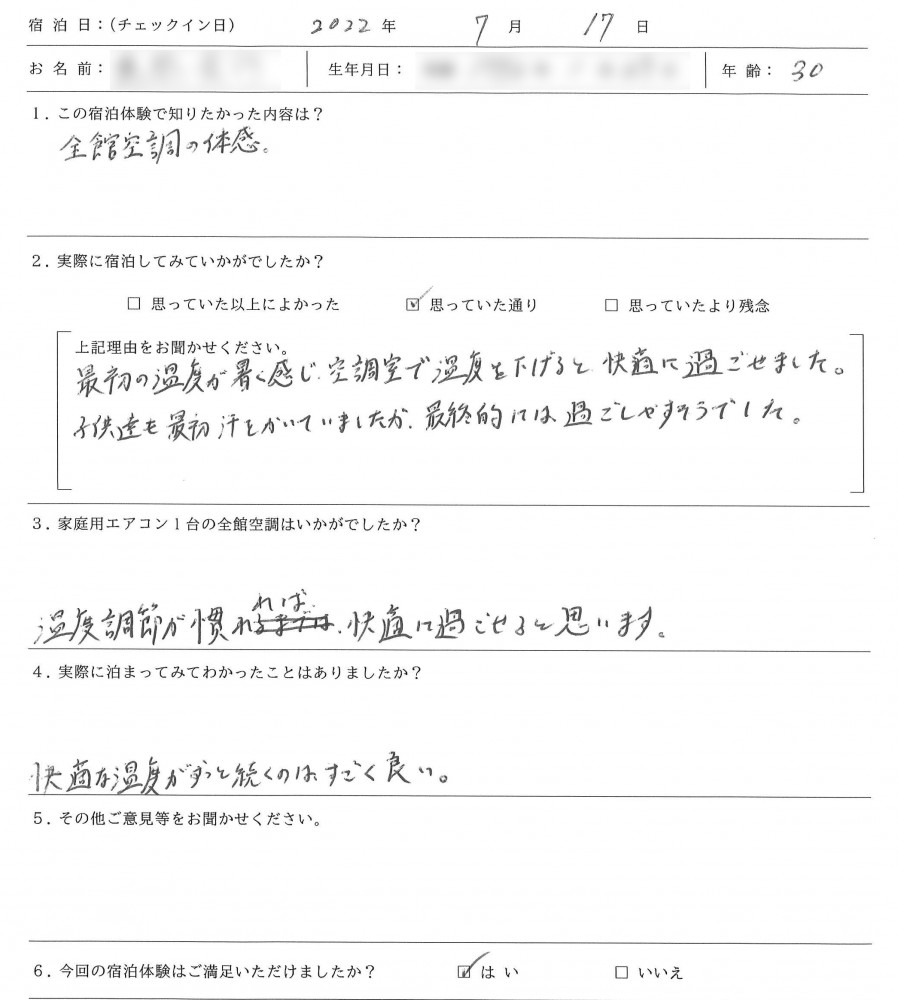 宿 泊 日：（チェックイン日） 2022 年 7 月 17 日
お 名 前： 生年月日： 年 齢： 30
1．この宿泊体験で知りたかった内容は？
全館空調の体感。
2．実際に宿泊してみていかがでしたか？
□ 思っていた以上によかった ☑ 思っていた通り □ 思っていたより残念
上記理由をお聞かせください。
最初の温度が暑く感じ、空調室で温度を下げると、快適に過ごせました。
子供達も最初汗をかいていましたが、最終的には過ごしやすそうでした。
3．家庭用エアコン1台の全館空調はいかがでしたか？
温度調節が慣れれば、快適に過ごせると思います。
4．実際に泊まってみてわかったことはありましたか？
快適な温度がずっと続くのは、すごく良い。
5．その他ご意見等をお聞かせください。
6．今回の宿泊体験はご満足いただけましたか？ ☑ はい □ いいえ